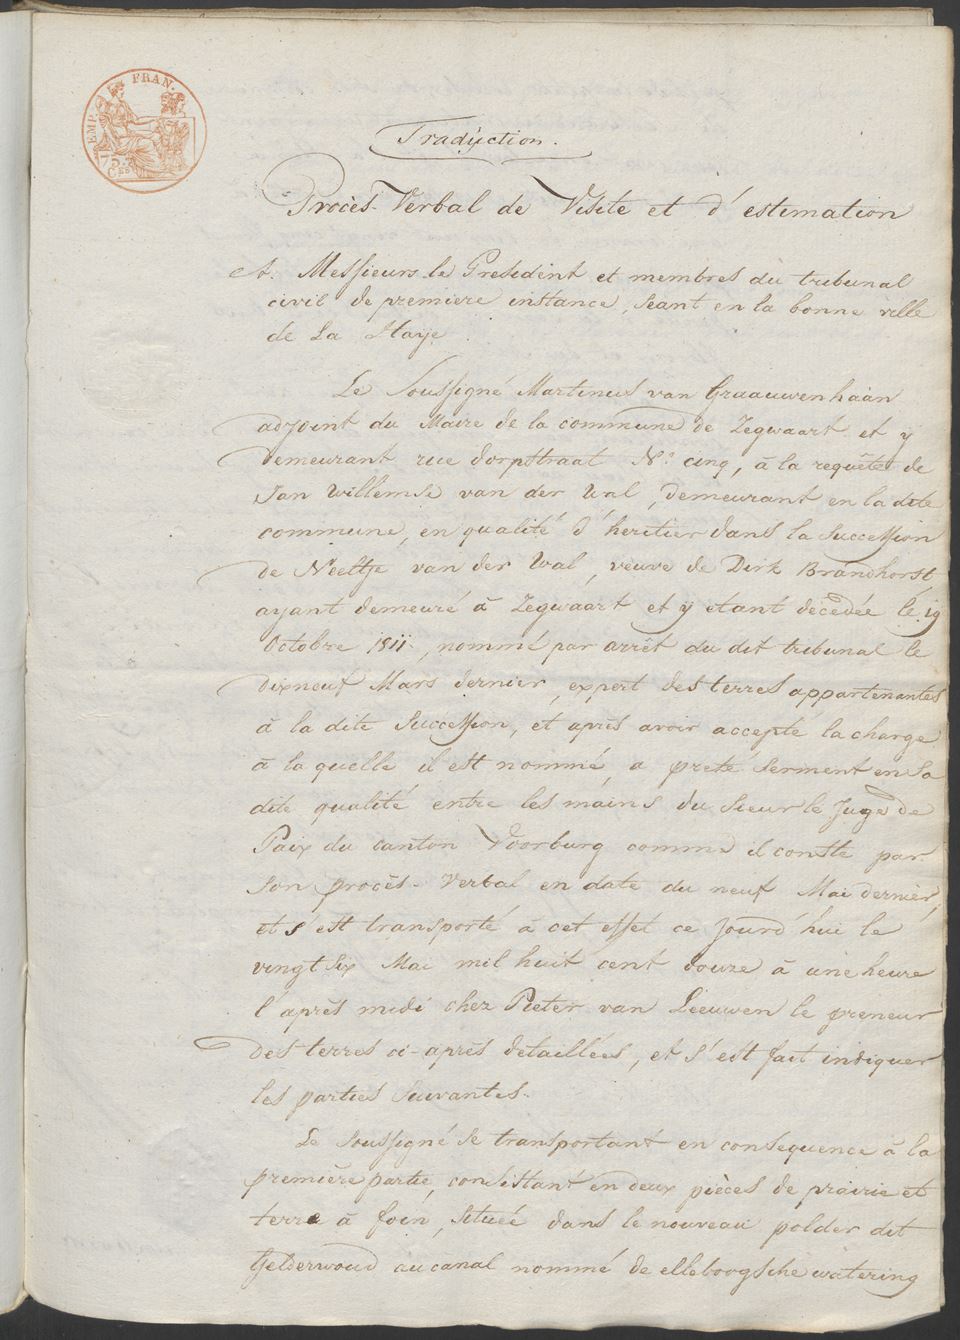 EMP. FRAN.
75.
Ces
Traduction.
Procès-Verbal de Visite et d'estimation
A. Messieurs le President et membres du tribunal
civil de premiere instance, seant en la bonne ville
de La Haye
Le Soussigné Martinus van Graauwenhaan
adjoint du Maire de la commune de Zegwaart et y
demeurant rue dorpstraat No. cinq, à la requête de
Jan Willemse van der Wal, demeurant en la dite
commune, en qualité d'heritier dans la succession
de Neeltje van der Wal, veuve de Dirk Brandhorst,
ayant demeuré à Zegwaart et y etant décédée le 19
Octobre 1811., nommé par arrêt du dit tribunal le
dixneuf Mars dernier, expert des terres appartenantes
à la dite succession, et après avoir accepté la charge
à laquelle il est nommé, a preté serment en sa
dite qualité entre les mains du Sieur le Juge de
Paix du canton Voorburg comme il conste par
son procès-Verbal en date du neuf Mai dernier,
et s'est transporté à cet effet ce Jourd'hui le
vingt six Mai mil huit cent douze à une heure
l'après midi chez Pieter van Leeuwen le preneur
des terres ci-après detaillées, et s'est fait indiquer
les parties suivantes.
Le soussigné se transportant en consequence à la
première partie, consistant en deux pièces de prairie et
terre à foin, située dans le nouveau polder dit
Gelderwoud au canal nommé de elleboogsche watering